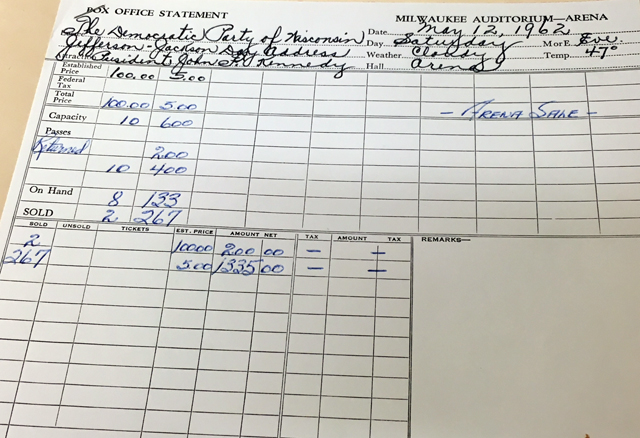 BOX OFFICE STATEMENT MILWAUKEE AUDITORIUM—ARENA
The Democratic Party of Wisconsin Date May 12, 1962
Jefferson-Jackson Day Address Day Saturday M or E. Eve.
President John F. Kennedy Weather Cloudy Temp. 47°
Hall Arena
Established Price 100.00 5.00
Federal Tax
Total Price 100.00 5.00 - ARENA SALE -
Capacity 10 600
Passes
Returned 200
10 400
On Hand 8 133
SOLD 2 267
SOLD UNSOLD TICKETS EST. PRICE AMOUNT NET TAX AMOUNT TAX REMARKS—
2 100.00 200 00 — —
267 5.00 1335 00 — —